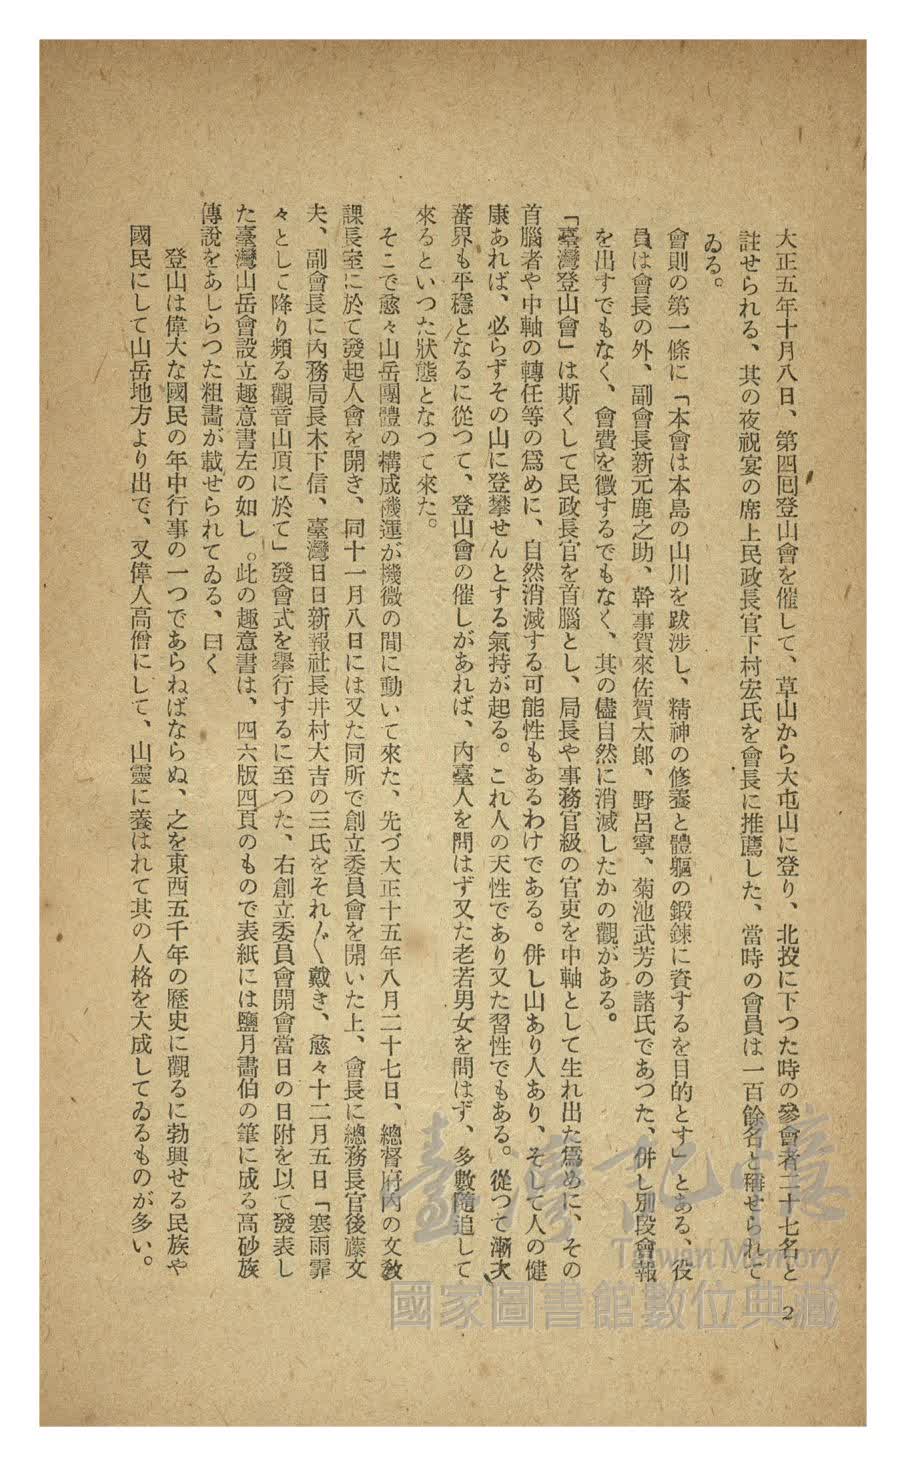 大正五年十月八日、第四囘登山會を催して、草山から大屯山に登り、北投に下つた時の參會者二十七名と
註せられる、其の夜祝宴の席上民政長官下村宏氏を會長に推薦した、當時の會員は一百餘名と稱せられて
ゐる。
會則の第一條に「本會は本島の山川を跋渉し、精神の修養と體軀の鍛錬に資するを目的とす」とある、役
員は會長の外、副會長新元鹿之助、幹事賀來佐賀太郎、野呂寧、菊池武芳の諸氏であつた、併し別段會報
を出すでもなく、會費を徴するでもなく、其の儘自然に消滅したかの觀がある。
「臺灣登山會」は斯くして民政長官を首腦とし、局長や事務官級の官吏を中軸として生れ出た爲めに、その
首腦者や中軸の轉任等の爲めに、自然消滅する可能性もあるわけである。併し山あり人あり、そして人の健
康あれば、必らずその山に登攀せんとする氣持が起る。これ人の天性であり又た習性でもある。從つて漸次
蕃界も平穩となるに從つて、登山會の催しがあれば、内臺人を問はず又た老若男女を問はず、多數隨追して
來るといつた狀態となつて來た。
そこで愈々山岳團體の構成機運が機微の間に動いて來た、先づ大正十五年八月二十七日、總督府内の文敎
課長室に於て發起人會を開き、同十一月八日には又た同所で創立委員會を開いた上、會長に總務長官後藤文
夫、副會長に内務局長木下信、臺灣日日新報社長井村大吉の三氏をそれ〲戴き、愈々十二月五日「寒雨霏
々として降り頻る觀音山頂に於て」發會式を擧行するに至つた、右創立委員會開會當日の日附を以て發表し
た臺灣山岳會設立趣意書左の如し。此の趣意書は、四六版四頁のもので表紙には鹽月畫伯の筆に成る高砂族
傳說をあしらつた粗畫が載せられてゐる、曰く
登山は偉大な國民の年中行事の一つであらねばならぬ、之を東西五千年の歷史に觀るに勃興せる民族や
國民にして山岳地方より出で、又偉人高僧にして、山靈に養はれて其の人格を大成してゐるものが多い。
2
臺灣記憶
Taiwan Memory
國家圖書館數位典藏